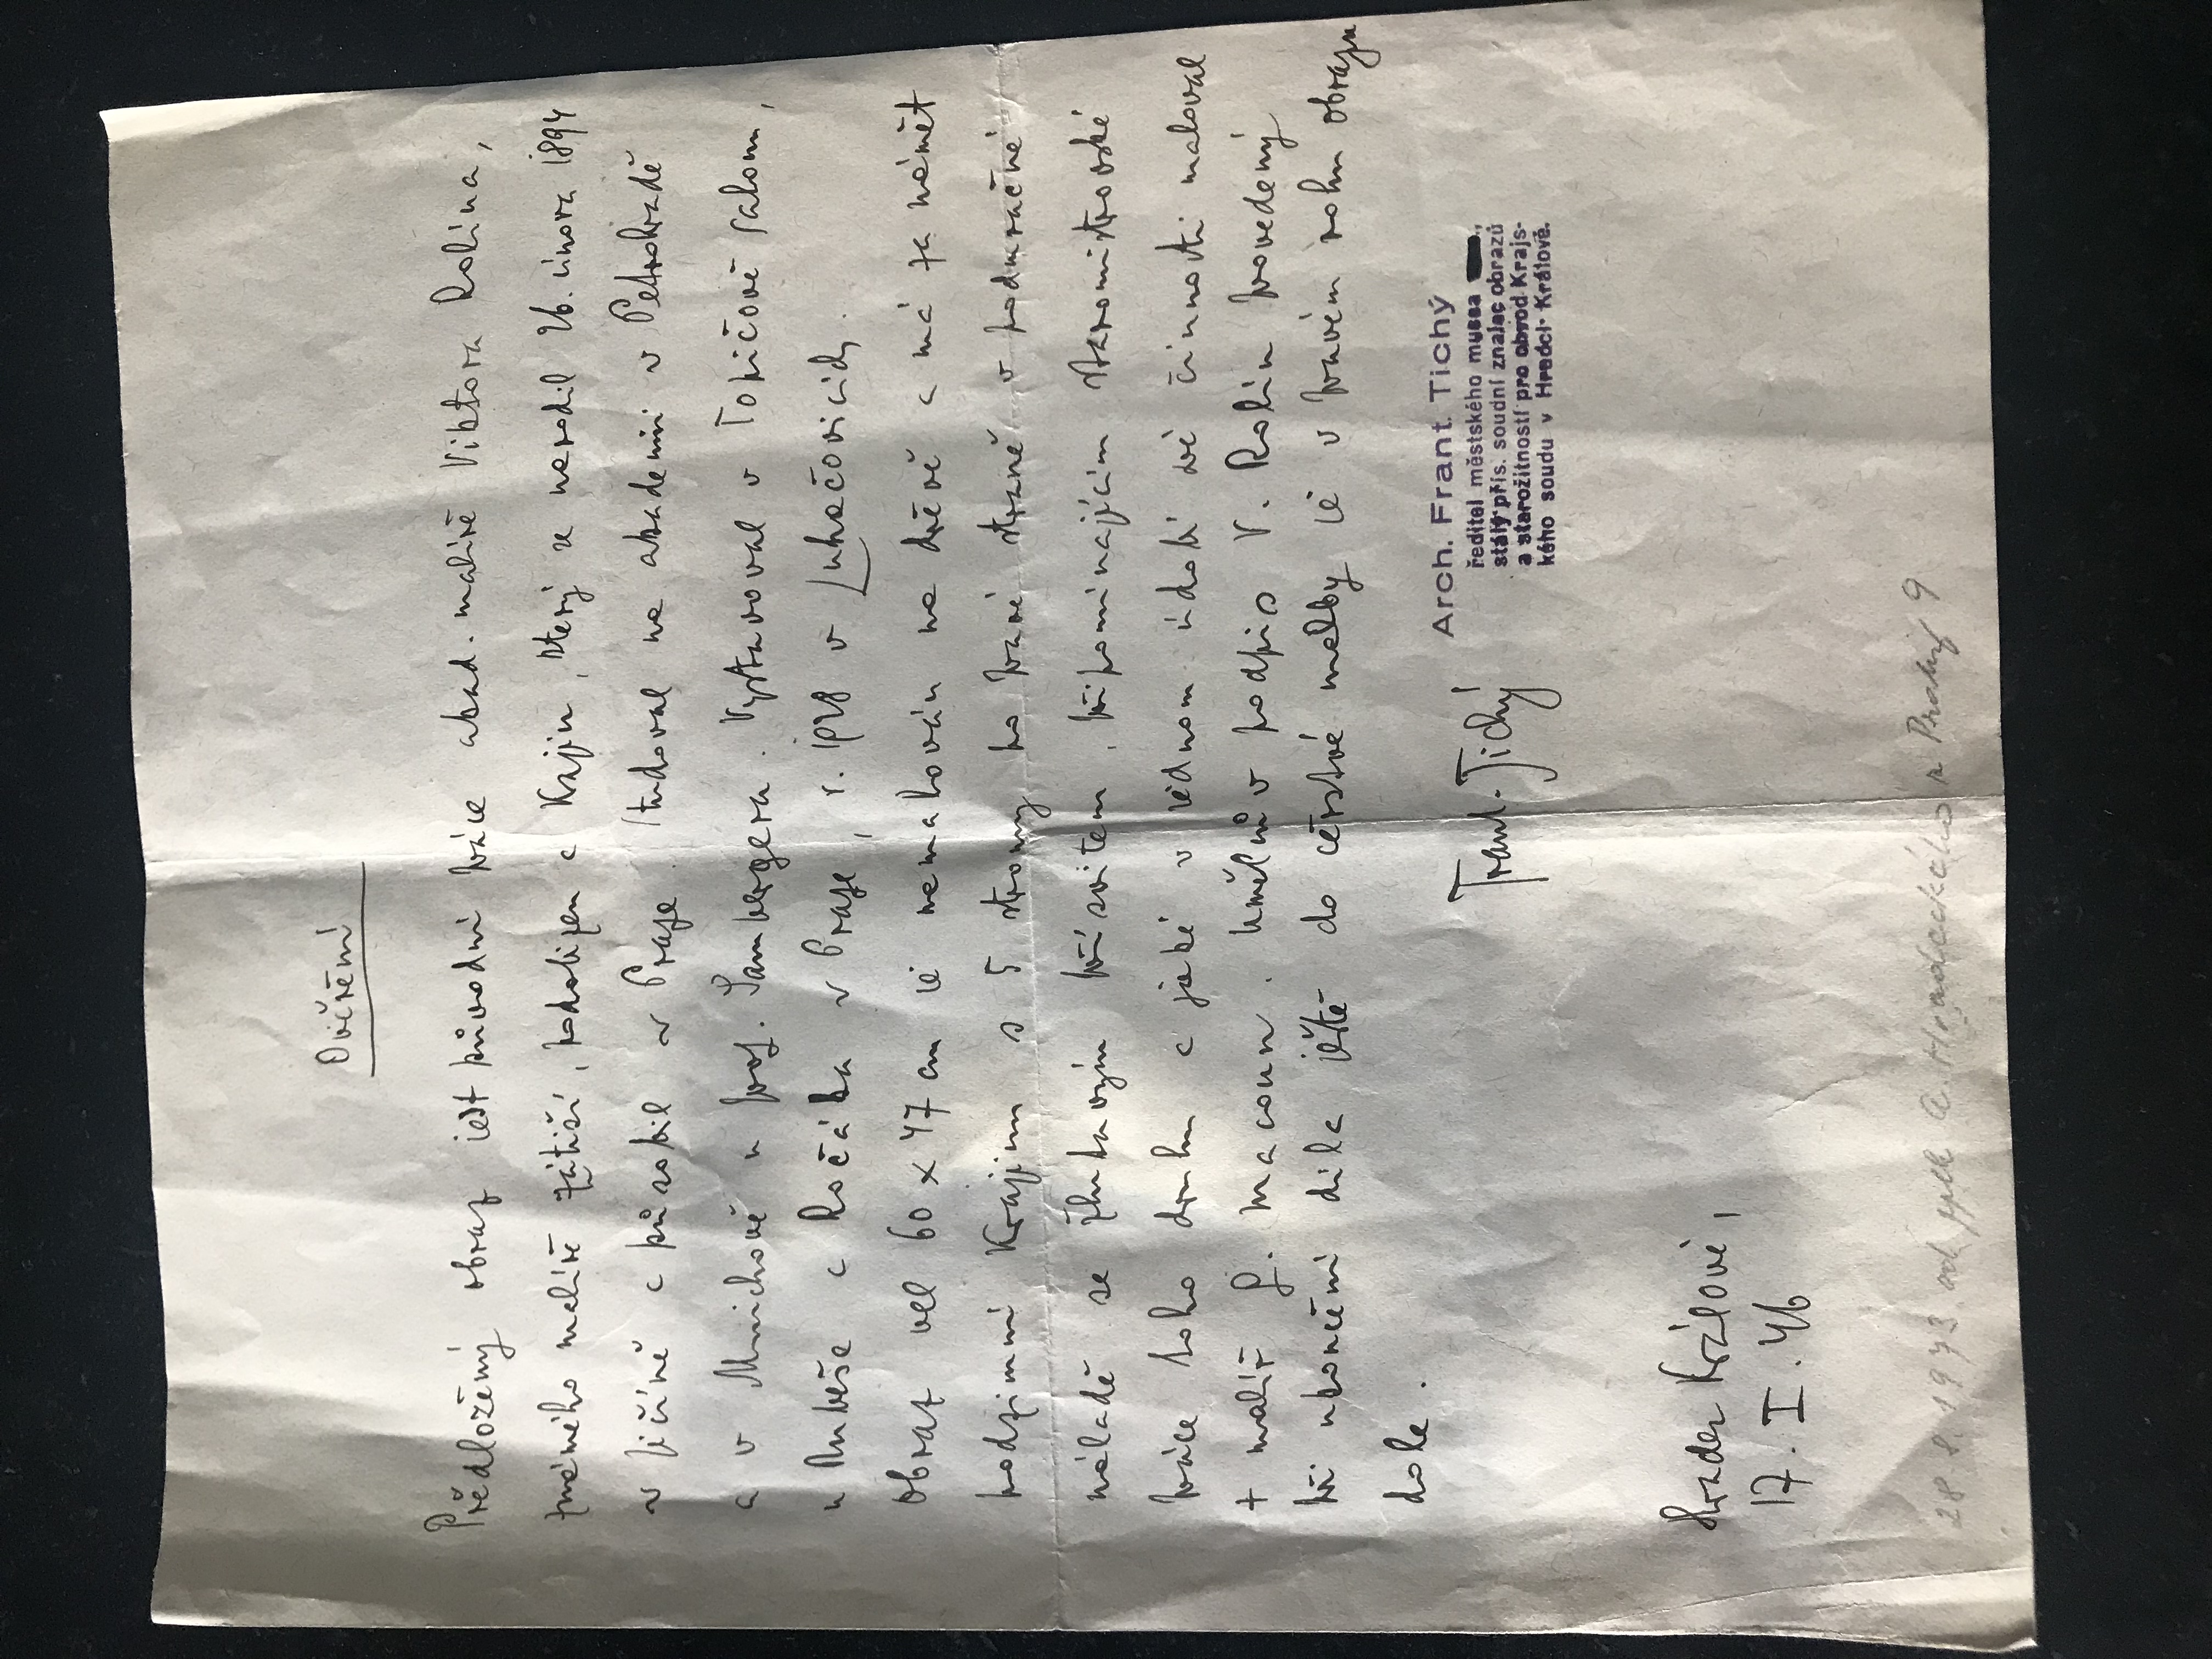 Ověření
Předložený obraz jest původní práce akad. malíře Viktora Rolína,
známého malíře zátiší, podobizen a krajin, který se narodil 26. února 1894
v Jičíně a působil v Praze. Studoval na akademii v Petrohradě
a v Mnichově u prof. Sambergera. Vystavoval v Topičově salonu,
u Rubeše a Ročáka v Praze, r. 1928 v Luhačovicích.
Obraz vel 60 x 47 cm je namalován na dřevě a má za námět
podzimní krajinu s 5 stromy po pravé straně v podmračné
náladě se žlutavým přísvitem, připomínajícím staromistrovské
práce toho druhu a jaké v jednom údobí své činnosti maloval
+ malíř G. Macoun. Umělcův podpis V. Rolín provedený
při ukončení díla ještě do čerstvé malby je v pravém rohu obrazu
dole.
Frant. Tichý
Arch. Frant. Tichý
ředitel městského musea
stálý přís. soudní znalec obrazů
a starožitností pro obvod Krajs-
kého soudu v Hradci Králové.
Hradec Králové,
17. I. 46
28. 8. 1973 od pplk A. Hradeckého z Prahy 9